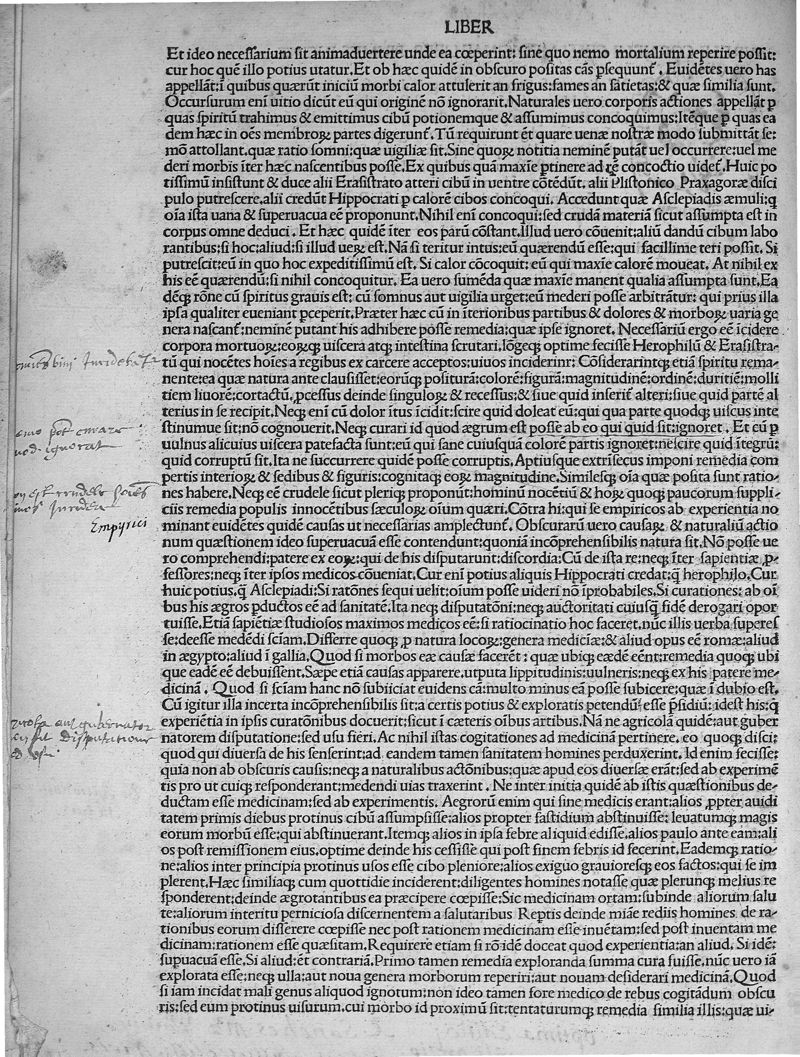 LIBER
Et ideo necessarium sit animaduertere unde ea cœperint: sine quo nemo mortalium reperire possit:
cur hoc quē illo potius utatur. Et ob hæc quidē in obscuro positas cās ꝓsequunt̃. Euidētes uero has
appellāt: ī quibus quærūt iniciū morbi calor attulerit an frigus: fames an satietas: & quæ similia sunt.
Occursurum enī uitio dicūt eū qui originē nō ignorarit. Naturales uero corporis actiones appellāt ꝑ
quas spiritū trahimus & emittimus cibū potionemque & assumimus concoquimus: Itēque ꝑ quas ea
dem hæc in oēs membroꝝ partes digerunt̃. Tū requirunt ēt quare uenæ nostræ modo submittāt se:
mō attollant. quæ ratio somni: quæ uigiliæ sit. Sine quoꝝ notitia neminē putāt uel occurrere: uel me
deri morbis īter hæc nascentibus posse. Ex quibus quā maxīe ꝑtinere ad rē concoctio uidet̃. Huic po
tissimū insistunt & duce alii Erasistrato atteri cibū in uentre cōtēdūt. alii Plistonico Praxagoræ disci
pulo putrescere. alii credūt Hippocrati ꝑ calorē cibos concoqui. Accedunt quæ Asclepiadis æmuli: q̄
oīa ista uana & superuacua eē proponunt. Nihil enī concoqui: sed crudā materiā sicut assumpta est in
corpus omne deduci. Et hæc quidē īter eos parū cōstant. Illud uero cōuenit: aliū dandū cibum labo
rantibus: si hoc: aliud: si illud ueꝝ est. Nā si teritur intus: eū quærendū esse: qui facillime teri possit. Si
putrescit: eū in quo hoc expeditissimū est. Si calor cōcoquit: eū qui maxīe calorē moueat. At nihil ex
his eē quærendū: si nihil concoquitur. Ea uero sumēda quæ maxīe manent qualia assumpta sunt. Ea
dēꝙ rōne cū spiritus grauis est: cū somnus aut uigilia urget: eū mederi posse arbitrātur: qui prius illa
ipsa qualiter eueniant ꝑceperit. Præter hæc cū in īterioribus partibus & dolores & morboꝝ uaria ge
nera nascant̃: neminē putant his adhibere posse remedia: quæ ipse ignoret. Necessariū ergo eē īcidere
corpora mortuoꝝ: eoꝝꝙ uiscera atqꝫ intestina scrutari. lōgeꝙ optime fecisse Herophilū & Erasistra-
tū qui nocētes hoīes a regibus ex carcere acceptos: uiuos inciderint: Cōsiderarintꝙ etiā spiritu rema-
nente: ea quæ natura ante clausisset: eorūꝙ positurā: colorē: figurā: magnitudinē: ordinē: duritiē: molli
tiem liuorē: cortactū, ꝓcessus deinde singuloꝝ & recessus: & siue quid inserit̃ alteri: siue quid partē al
terius in se recipit. Neqꝫ enī cū dolor ītus īcidit: scire quid doleat eū: qui qua parte quodqꝫ uiscus inte
stinumue sit: nō cognouerit. Neqꝫ curari id quod ægrum est posse ab eo qui quid sit: ignoret. Et cū ꝑ
uulnus alicuius uiscera patefacta sunt: eū qui sanæ cuiusquā colorē partis ignoret: nescire quid ītegrū:
quid corruptū sit. Ita ne succurrere quidē posse corruptis. Aptiusque extrīsecus imponi remedia com
pertis interioꝝ & sedibus & figuris: cognitaꝙ eoꝝ magnitudine. Similesꝙ oīa quæ posita sunt ratio-
nes habere. Neqꝫ eē crudele sicut pleriqꝫ proponūt: hominū nocētiū & hoꝝ quoqꝫ paucorum suppli-
ciis remedia populis innocētibus sæculoꝝ oīum quæri. Cōtra hi: qui se empiricos ab experientia no
minant euidētes quidē causas ut necessarias amplectunt̃. Obscurarū uero causaꝝ & naturaliū actio
num quæstionem ideo superuacuā esse contendunt: quoniā incōprehensibilis natura sit. Nō posse ue
ro comprehendi: patere ex eoꝝ: qui de his disputarunt: discordia: Cū de ista re: neqꝫ īter sapientiæ ꝓ-
fessores: neqꝫ īter ipsos medicos cōueniat. Cur enī potius aliquis Hippocrati credat: q̄ herophilo. Cur
huic potius, q̄ Asclepiadi: Si ratōnes sequi uelit: oīum posse uideri nō īprobabiles. Si curationes: ab oī
bus his ægros ꝓductos eē ad sanitatē. Ita neqꝫ disputatōni: neqꝫ auctoritati cuiusꝙ fidē derogari opor
tuisse. Etiā sapiētiæ studiosos maximos medicos eē: si ratiocinatio hoc faceret. nūc illis uerba superes
se: deesse medēdi sciam. Differre quoqꝫ ꝓ natura locoꝝ: genera medicīæ: & aliud opus eē romæ: aliud
in ægypto: aliud ī gallia. Quod si morbos eæ causæ facerēt: quæ ubiqꝫ eædē eēnt: remedia quoqꝫ ubi
que eadē eē debuissent. Sæpe etiā causas apparere. utputa lippitudinis: uulneris: neqꝫ ex his patere me-
dicinā. Quod si sciam hanc nō subiiciat euidens cā: multo minus eā posse subicere: quæ ī dubio est.
Cū igitur illa incerta incōprehensibilis sit: a certis potius & exploratis petendū esse ꝓsidiū: idest his: q̄
experiētia in ipsis curatōnibus docuerit: sicut ī cæteris oībus artibus. Nā ne agricolā quidē: aut guber
natorem disputatione: sed usu fieri. Ac nihil istas cogitationes ad medicinā pertinere. eo quoqꝫ disci:
quod qui diuersa de his senserint: ad eandem tamen sanitatem homines perduxerint. Id enim fecisse:
quia non ab obscuris causis: neqꝫ a naturalibus actōnibus: quæ apud eos diuersæ erāt: sed ab experimē
tis pro ut cuiqꝫ responderant: medendi uias traxerint. Ne inter initia quidē ab istis quæstionibus de-
ductam esse medicinam: sed ab experimentis. Aegrorū enim qui sine medicis erant: alios ꝓpter auidi
tatem primis diebus protinus cibū assumpsisse: alios propter fastidium abstinuisse: leuatumqꝫ magis
eorum morbū esse: qui abstinuerant. Itemqꝫ alios in ipsa febre aliquid edisse, alios paulo ante eam: ali
os post remissionem eius, optime deinde his cessisse qui post finem febris id fecerint, Eademqꝫ ratio-
ne: alios inter principia protinus usos esse cibo pleniore: alios exiguo grauioresꝙ eos factos: qui se im
plerent. Hæc similiaqꝫ cum quottidie inciderent: diligentes homines notasse quæ plerunqꝫ melius re
sponderent: deinde ægrotantibus ea præcipere cœpisse: Sic medicinam ortam: subinde aliorum salu
te: aliorum interitu perniciosa discernentem a salutaribus Reptis deinde miāe rediis homines de ra-
tionibus eorum disserere cœpisse nec post rationem medicinam esse inuētam: sed post inuentam me
dicinam: rationem esse quæsitam. Requirere etiam si rō idē doceat quod experientia: an aliud. Si idē:
supuacuā esse. Si aliud: ēt contrariā. Primo tamen remedia exploranda summa cura fuisse. nūc uero iā
explorata esse: neqꝫ ulla: aut noua genera morborum reperiri: aut nouam desiderari medicinā. Quod
si iam incidat mali genus aliquod ignotum: non ideo tamen fore medico de rebus cogitādum obscu
ris: sed eum protinus uisurum. cui morbo id proximū sit: tentaturumqꝫ remedia similia illis: quæ ui-
quod ignorat
Empyrici
disputatione